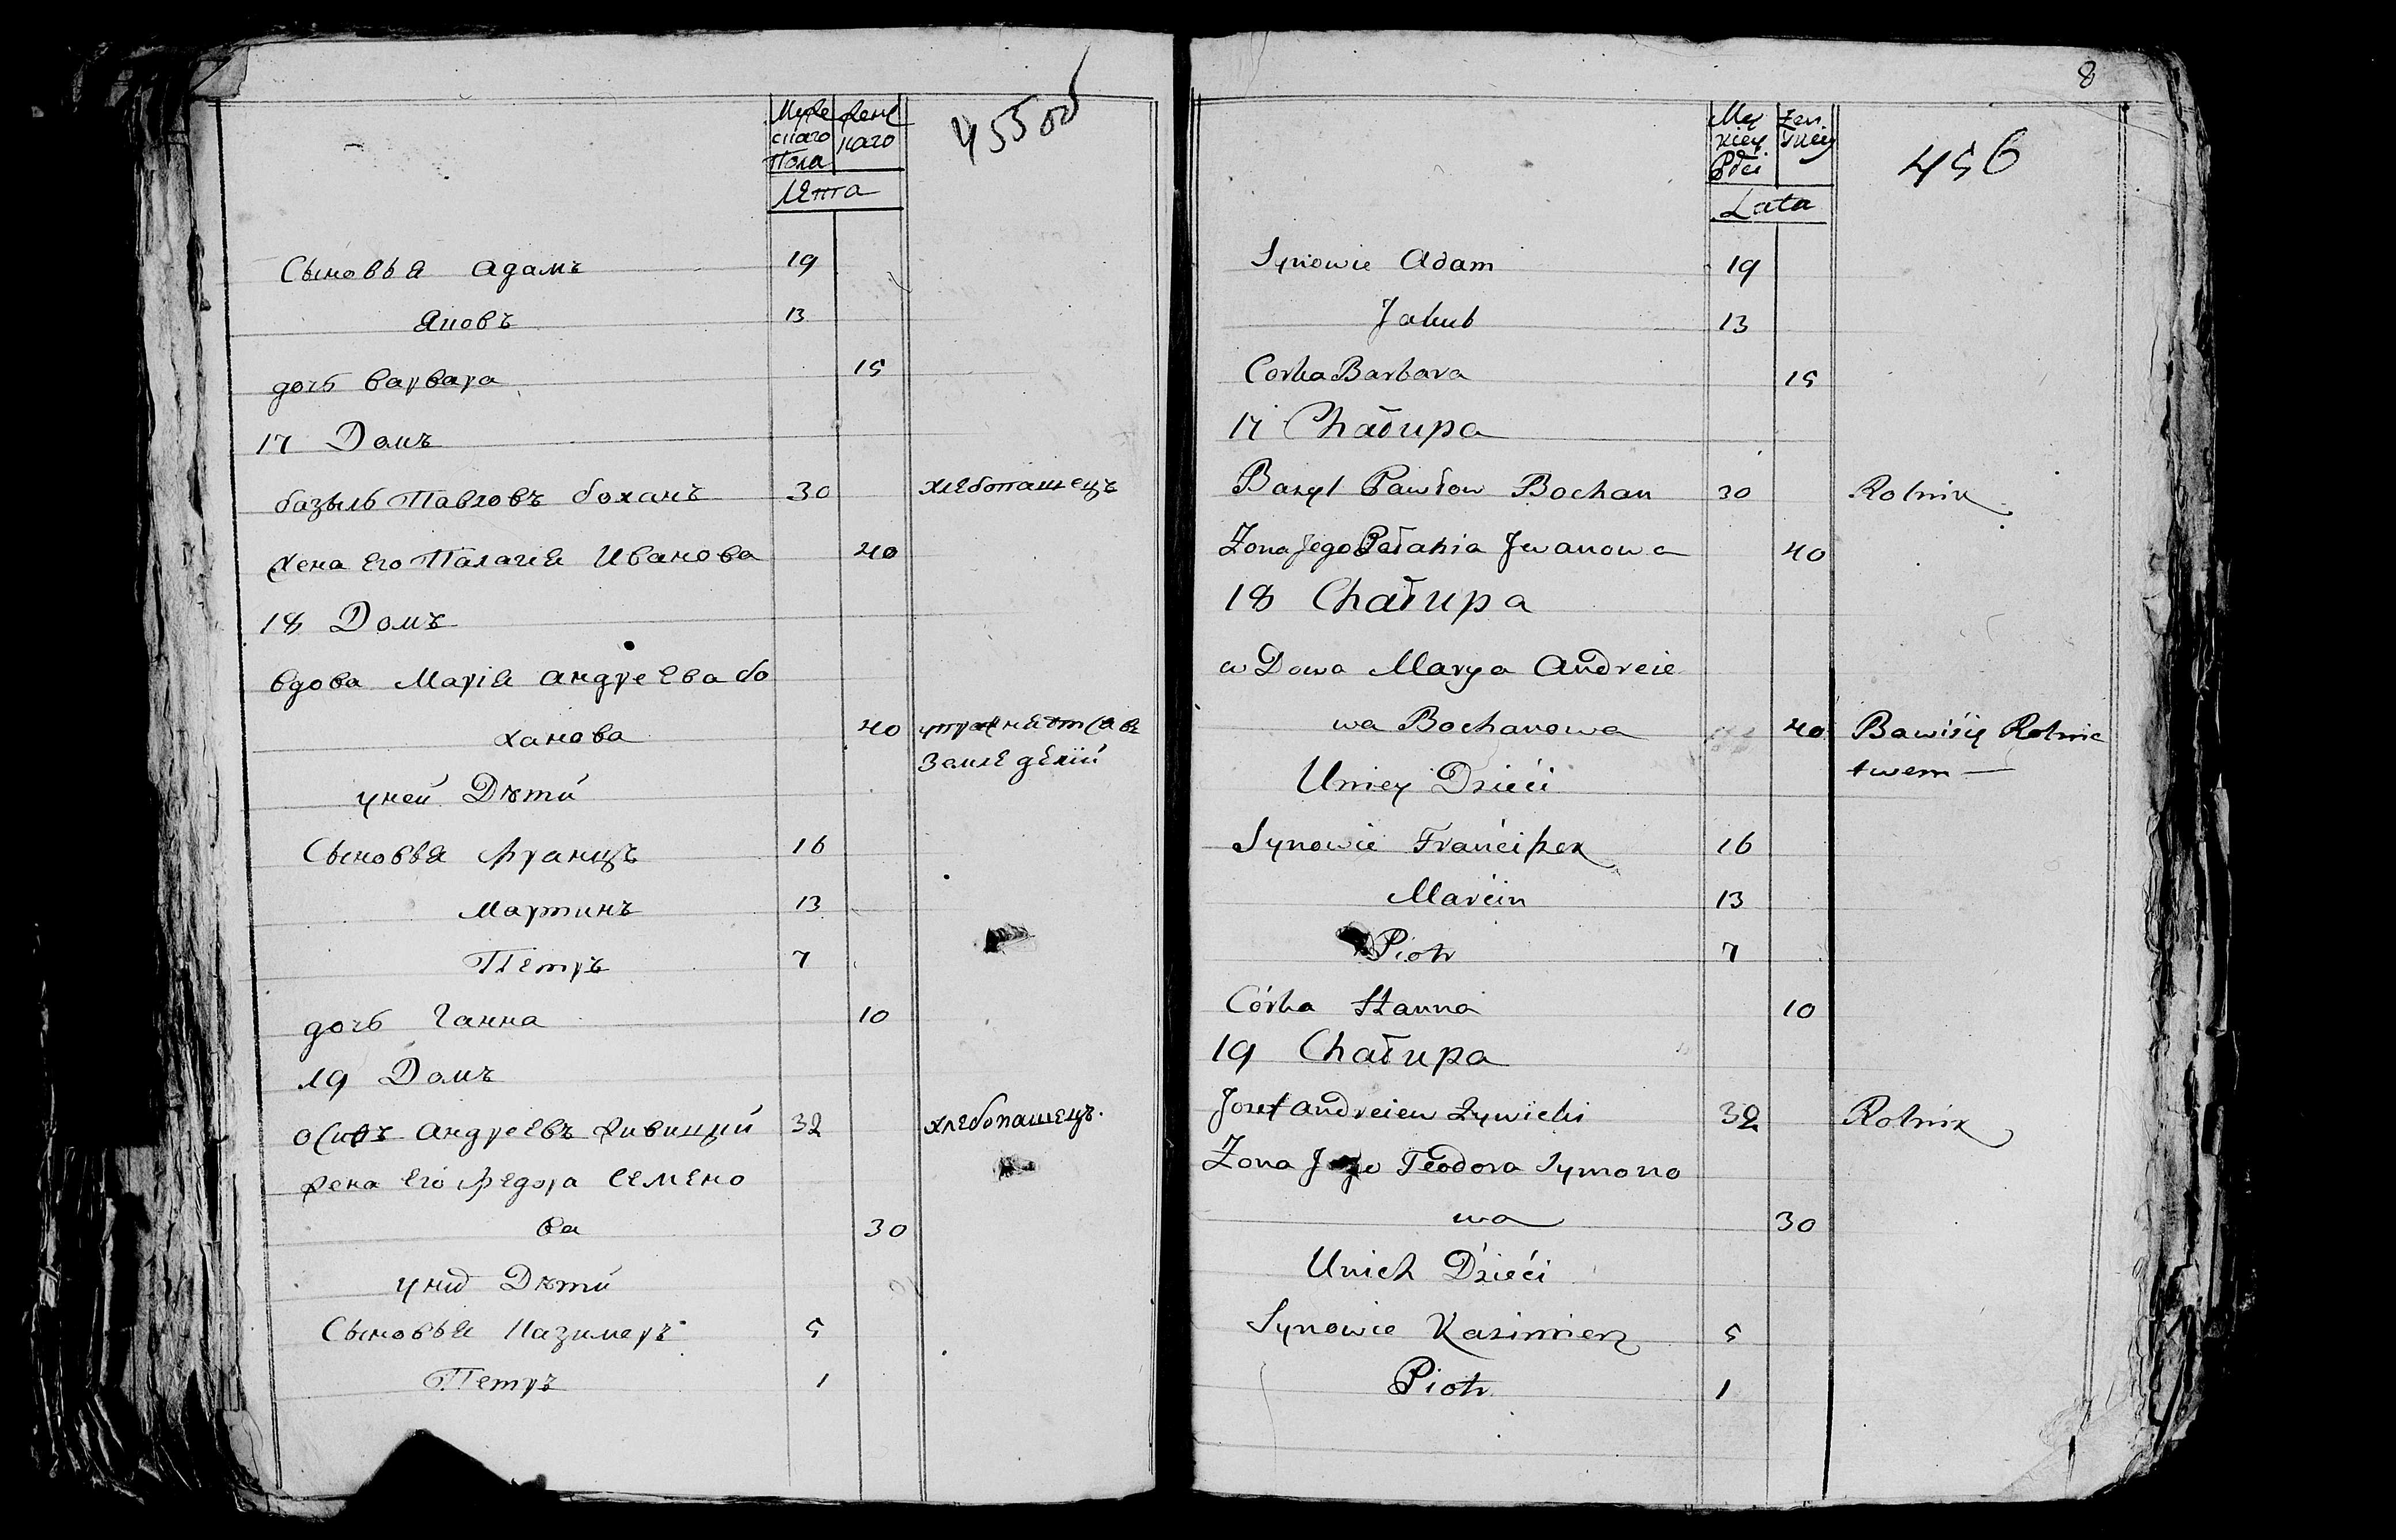 Муже
скаго
Пола
женс
каго
455 об
Лѣта
Сыновья адамъ 19
Яковъ 13
дочь варвара 15
17 Домъ
базыль Павловъ боханъ 30 хлебопашецъ
жена его Палагия Иванова 40
18 Домъ
вдова Марія андреева бо
ханова 40
земледелий
уней Дѣти
Сыновья францъ 16
Мартинъ 13
Петръ 7
дочь Ганна 10
19 Домъ
осипъ андреевъ живицкий 32 хлебопашецъ.
жена его федора семено
ва 30
Дѣти
Сыновья Казимеръ 5
Петръ 1
8
Męz
kiey
Płci
Żen
skiey
456
Lata
Synowie Adam 19
Jakub 13
Corka Barbara 15
17 Chałupa
Bazyl Pawłow Bochan 30 Rolnik
Zona Jego Pałahia Jwanowa 40
18 Chałupa
wDowa Marya Andreie
wa Bochanowa 40 Bawiśię Rolnic
twem —
Uniey Dzieći
Synowie Franćiszek 16
Marćin 13
Piotr 7
Córka Hanna 10
19 Chałupa
Jozef andreiew Zywicki 32 Rolnik
Zona Jego Teodora Symono
wa 30
Unich Dzieći
Synowie Kazimierz 5
Piotr 1